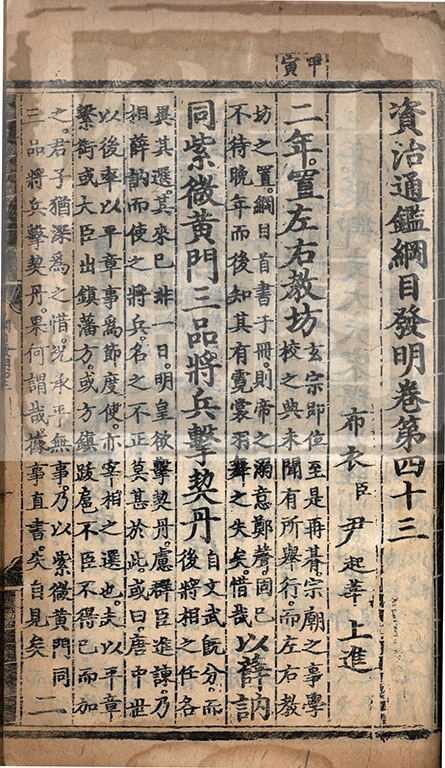 資治通鑑綱目發明卷第四十三
布衣臣尹起莘上進
甲寅
二年。置左右教坊
玄宗即位至是再朞。宗廟之事學
校之典未聞有所舉行。而左右教
坊之置。綱目首書于冊。則帝之溺意鄭聲。固已
不待晚年而後知其有霓裳羽舞之失矣。惜哉
以薛訥
同紫微黃門三品將兵擊契丹
自文武既分。而
後將相之任各
異其選。其來已非一日。明皇欲擊契丹。慮群臣進諫。乃
相薛訥而使之將兵。名之不正莫甚於此。或曰。唐中世
以後率以平章事為節度使。亦宰相之選也。夫以平章
繫銜或大臣出鎮藩方。或方鎮跋扈不臣不得已而加
之。君子猶深為之惜。況承平無事。乃以紫微黃門同
三品將兵擊契丹。果何謂哉。據事直書。失自見矣
二